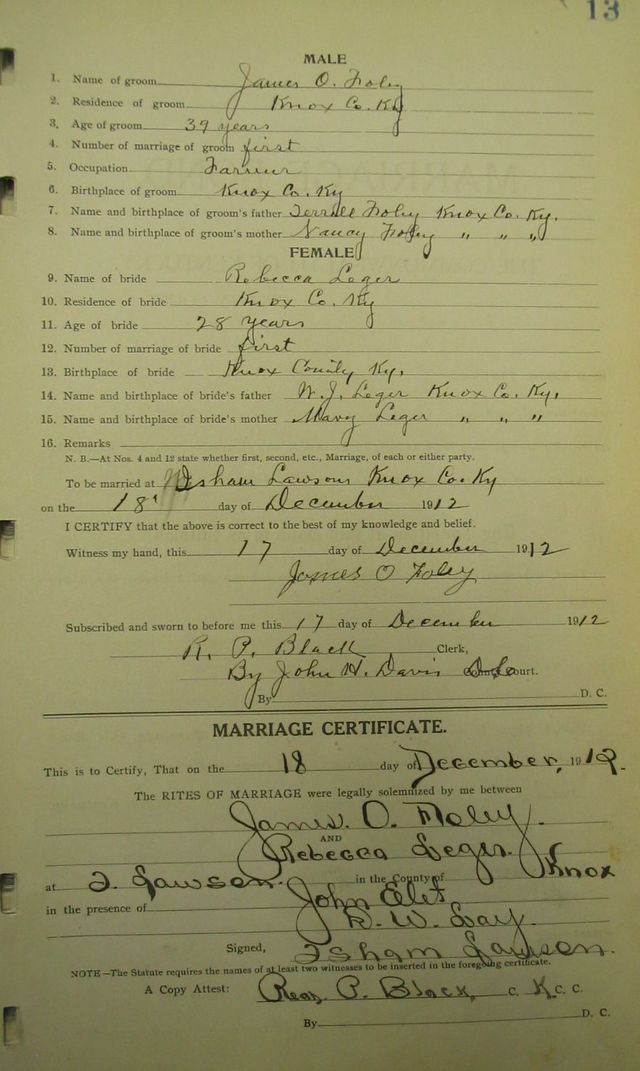 13
MALE
1. Name of groom James O. Foley
2. Residence of groom Knox Co. Ky
3. Age of groom 39 years
4. Number of marriage of groom first
5. Occupation Farmer
6. Birthplace of groom Knox Co. Ky
7. Name and birthplace of groom's father Terrell Foley Knox Co. Ky.
8. Name and birthplace of groom's mother Nancy Foley " " "
FEMALE
9. Name of bride Rebecca Leger
10. Residence of bride Knox Co. Ky
11. Age of bride 28 years
12. Number of marriage of bride first
13. Birthplace of bride Knox County Ky.
14. Name and birthplace of bride's father W. J. Leger Knox Co. Ky.
15. Name and birthplace of bride's mother Mary Leger " " "
16. Remarks
N. B.—At Nos. 4 and 12 state whether first, second, etc., Marriage, of each or either party.
To be married at Isham Lawsons Knox Co. Ky
on the 18 day of December 1912
I CERTIFY that the above is correct to the best of my knowledge and belief.
Witness my hand, this 17 day of December 1912
James O Foley
Subscribed and sworn to before me this 17 day of December 1912
R. P. Black Clerk,
By John H. Davis Court.
By D. C.
MARRIAGE CERTIFICATE.
This is to Certify, That on the 18 day of December, 1912.
The RITES OF MARRIAGE were legally solemnized by me between
James. O. Foley.
AND
Rebecca Leger.
at I. Lawson. in the County of Knox
in the presence of John
D. W. Lay.
Signed, Isham Lawson.
NOTE—The Statute requires the names of at least two witnesses to be inserted in the foregoing certificate.
A Copy Attest: P. Black, C. K. C. C.
By D. C.